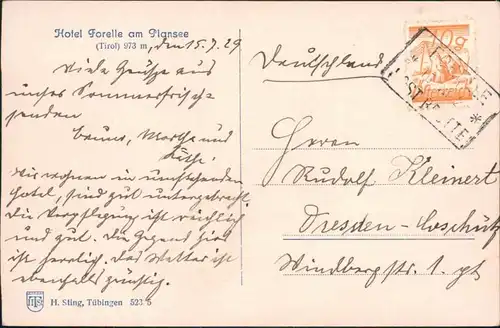 Hotel Forelle am Plansee
(Tirol) 973 m, den 15.7.29
Viele Grüsse aus
unsrer Sommerfrische
senden
Bruno, Martha und
Käthe.
Wir wohnen in umstehenden
Hotel, sind gut untergebracht.
Die Verpflegung ist reichlich
und gut. Die Gegend hier
ist herrlich. Das Wetter ist
ebenfalls günstig.
H. Sting, Tübingen 523 5
Deutschland
10 g
Österreich
Herrn
Rudolf Kleinert
Dresden-Coschütz
Windbergstr. 1. pt